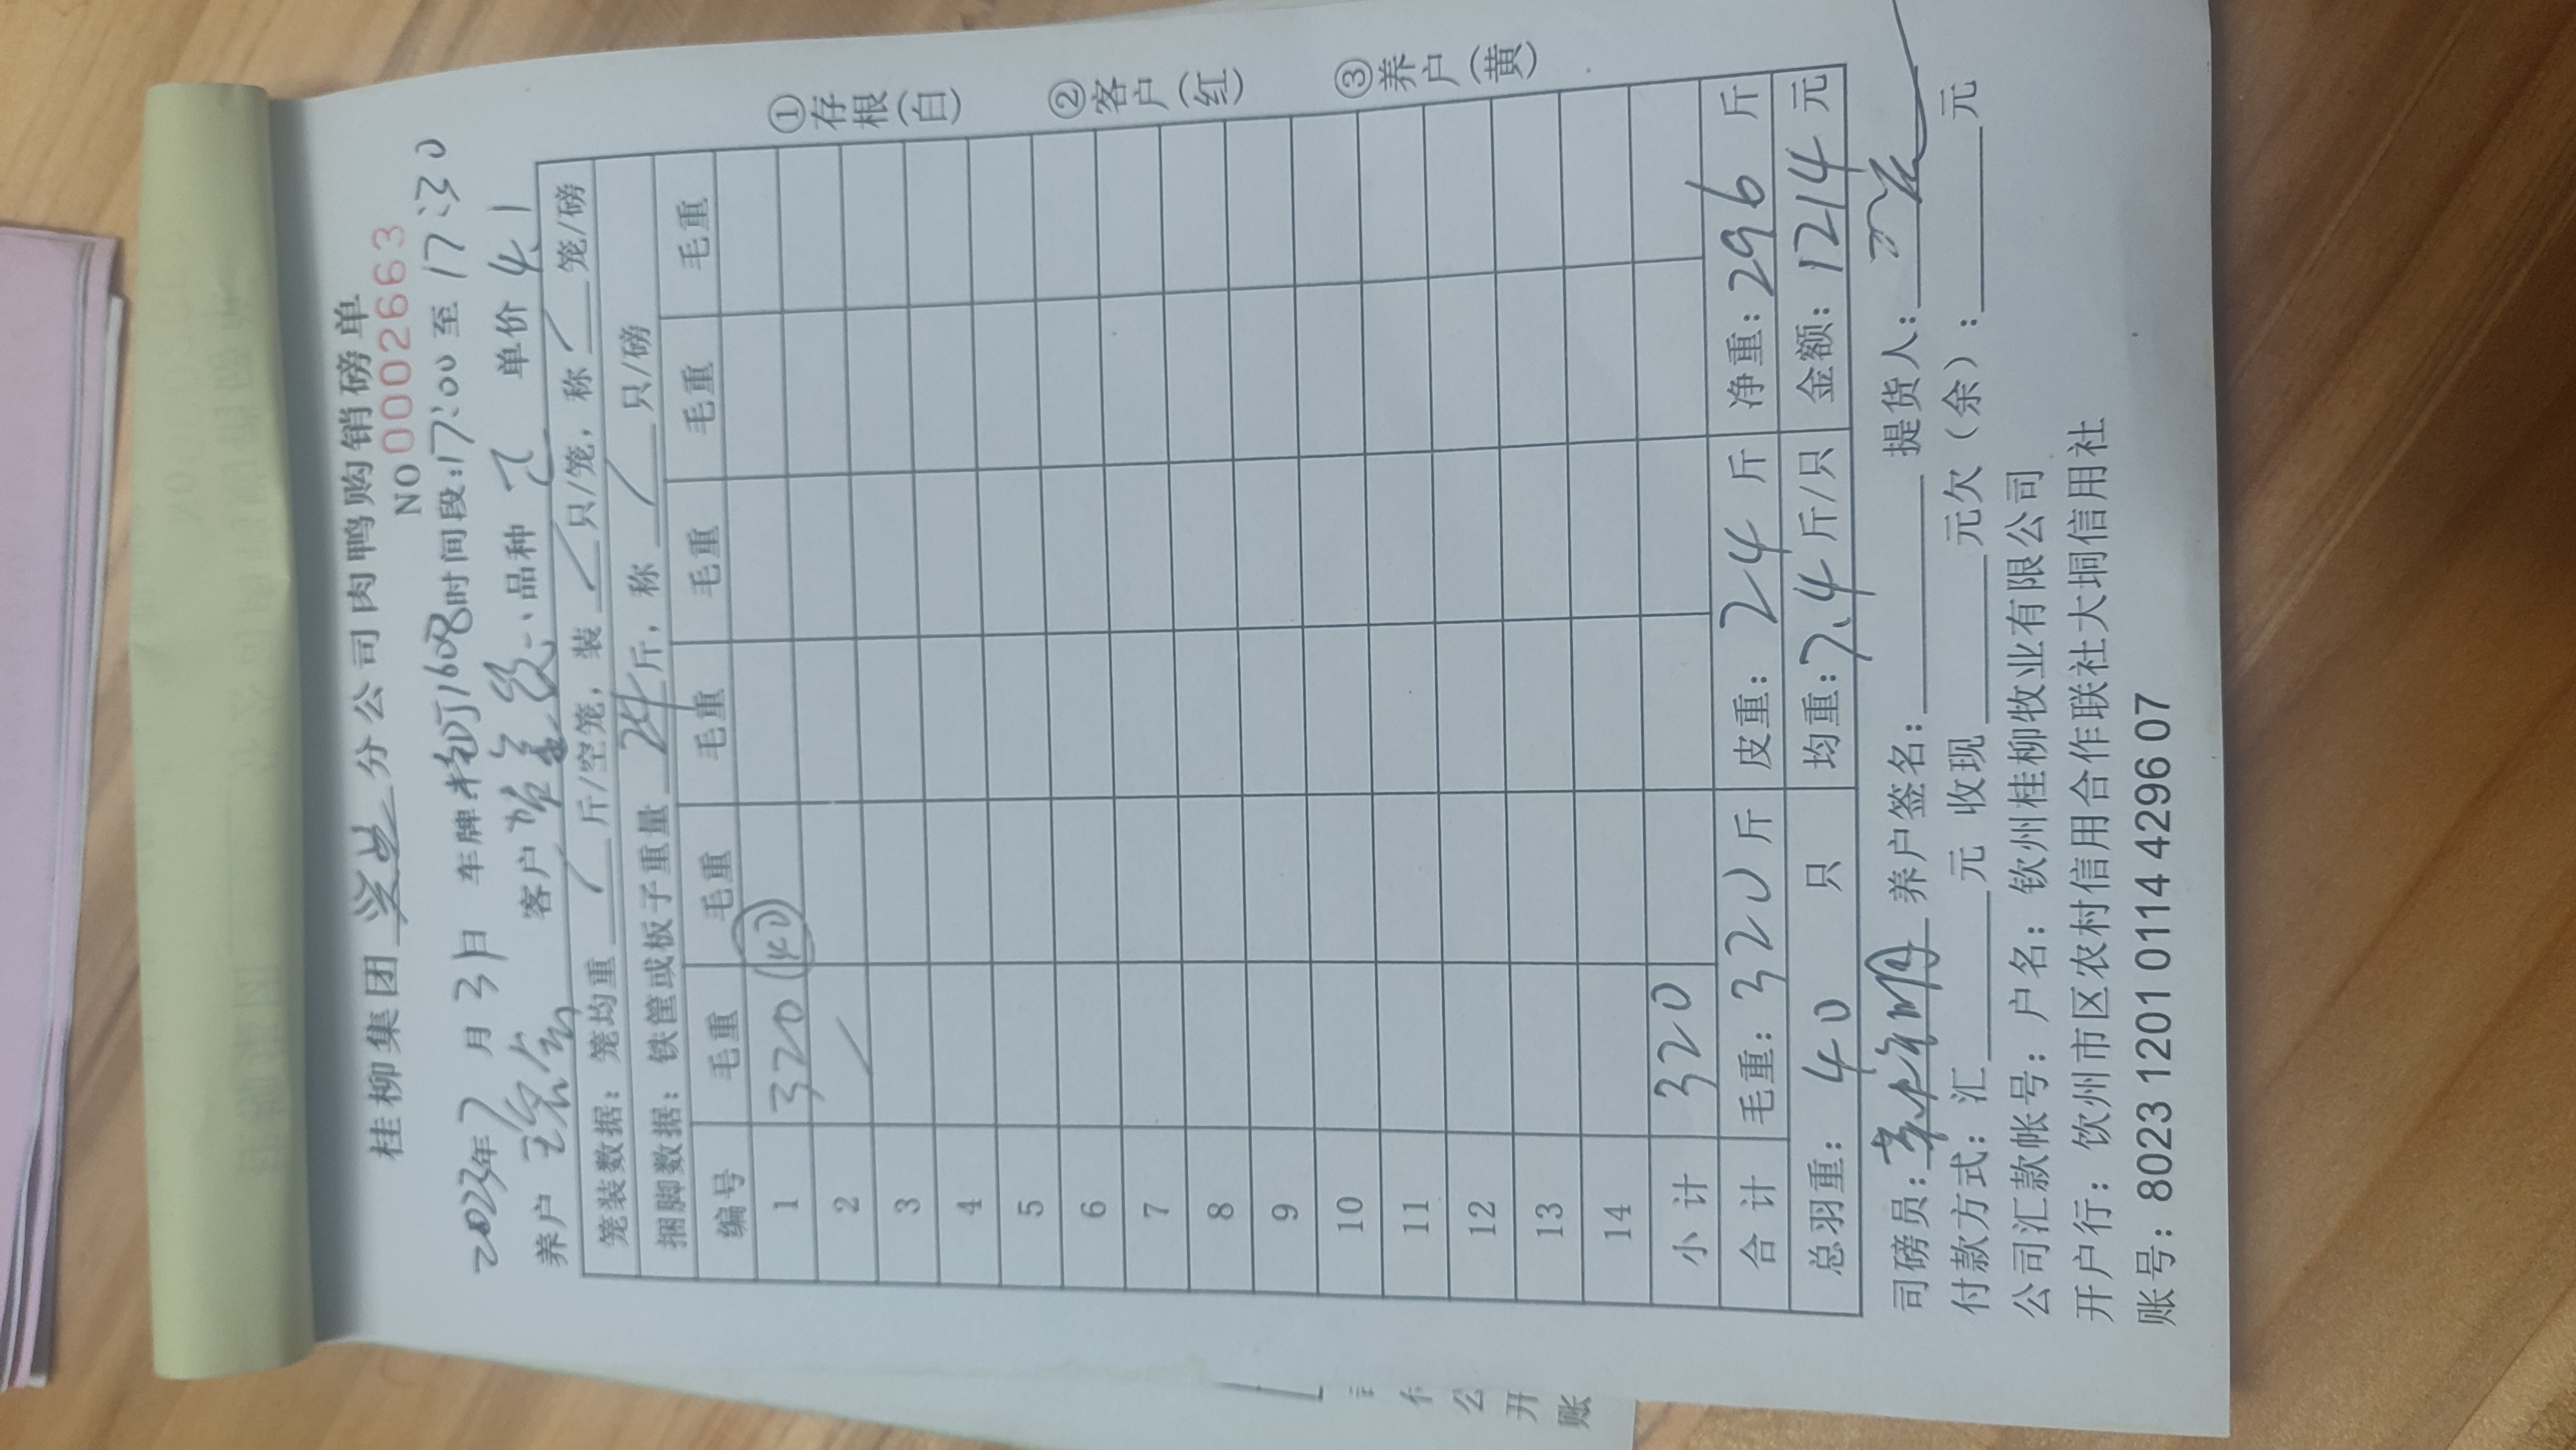 桂柳集团 分公司肉鸭购销磅单
NO 0002663
2023年7月3日 车牌 1608 时间段:17:00至17:30
养户 客户 品种 单价 4.1
笼装数据: 笼均重 / 斤/空笼, 装 / 只/笼, 称 / 笼/磅
捆脚数据: 铁筐或板子重量 24 斤, 称 / 只/磅
编号 毛重 毛重 毛重 毛重 毛重 毛重
1 320 (40)
2 /
3
4
5
6
7
8
9
10
11
12
13
14
小计 320
合计 毛重: 320 斤 皮重: 24 斤 净重: 296 斤
总羽重: 40 只 均重: 7.4 斤/只 金额: 1214 元
司磅员: 养户签名: 提货人:
付款方式: 汇 元 收现 元欠(余): 元
公司汇款帐号: 户名: 钦州桂柳牧业有限公司
开户行: 钦州市区农村信用合作联社大垌信用社
账号: 8023 1201 0114 4296 07
①存根(白)
②客户(红)
③养户(黄)
公
开
账